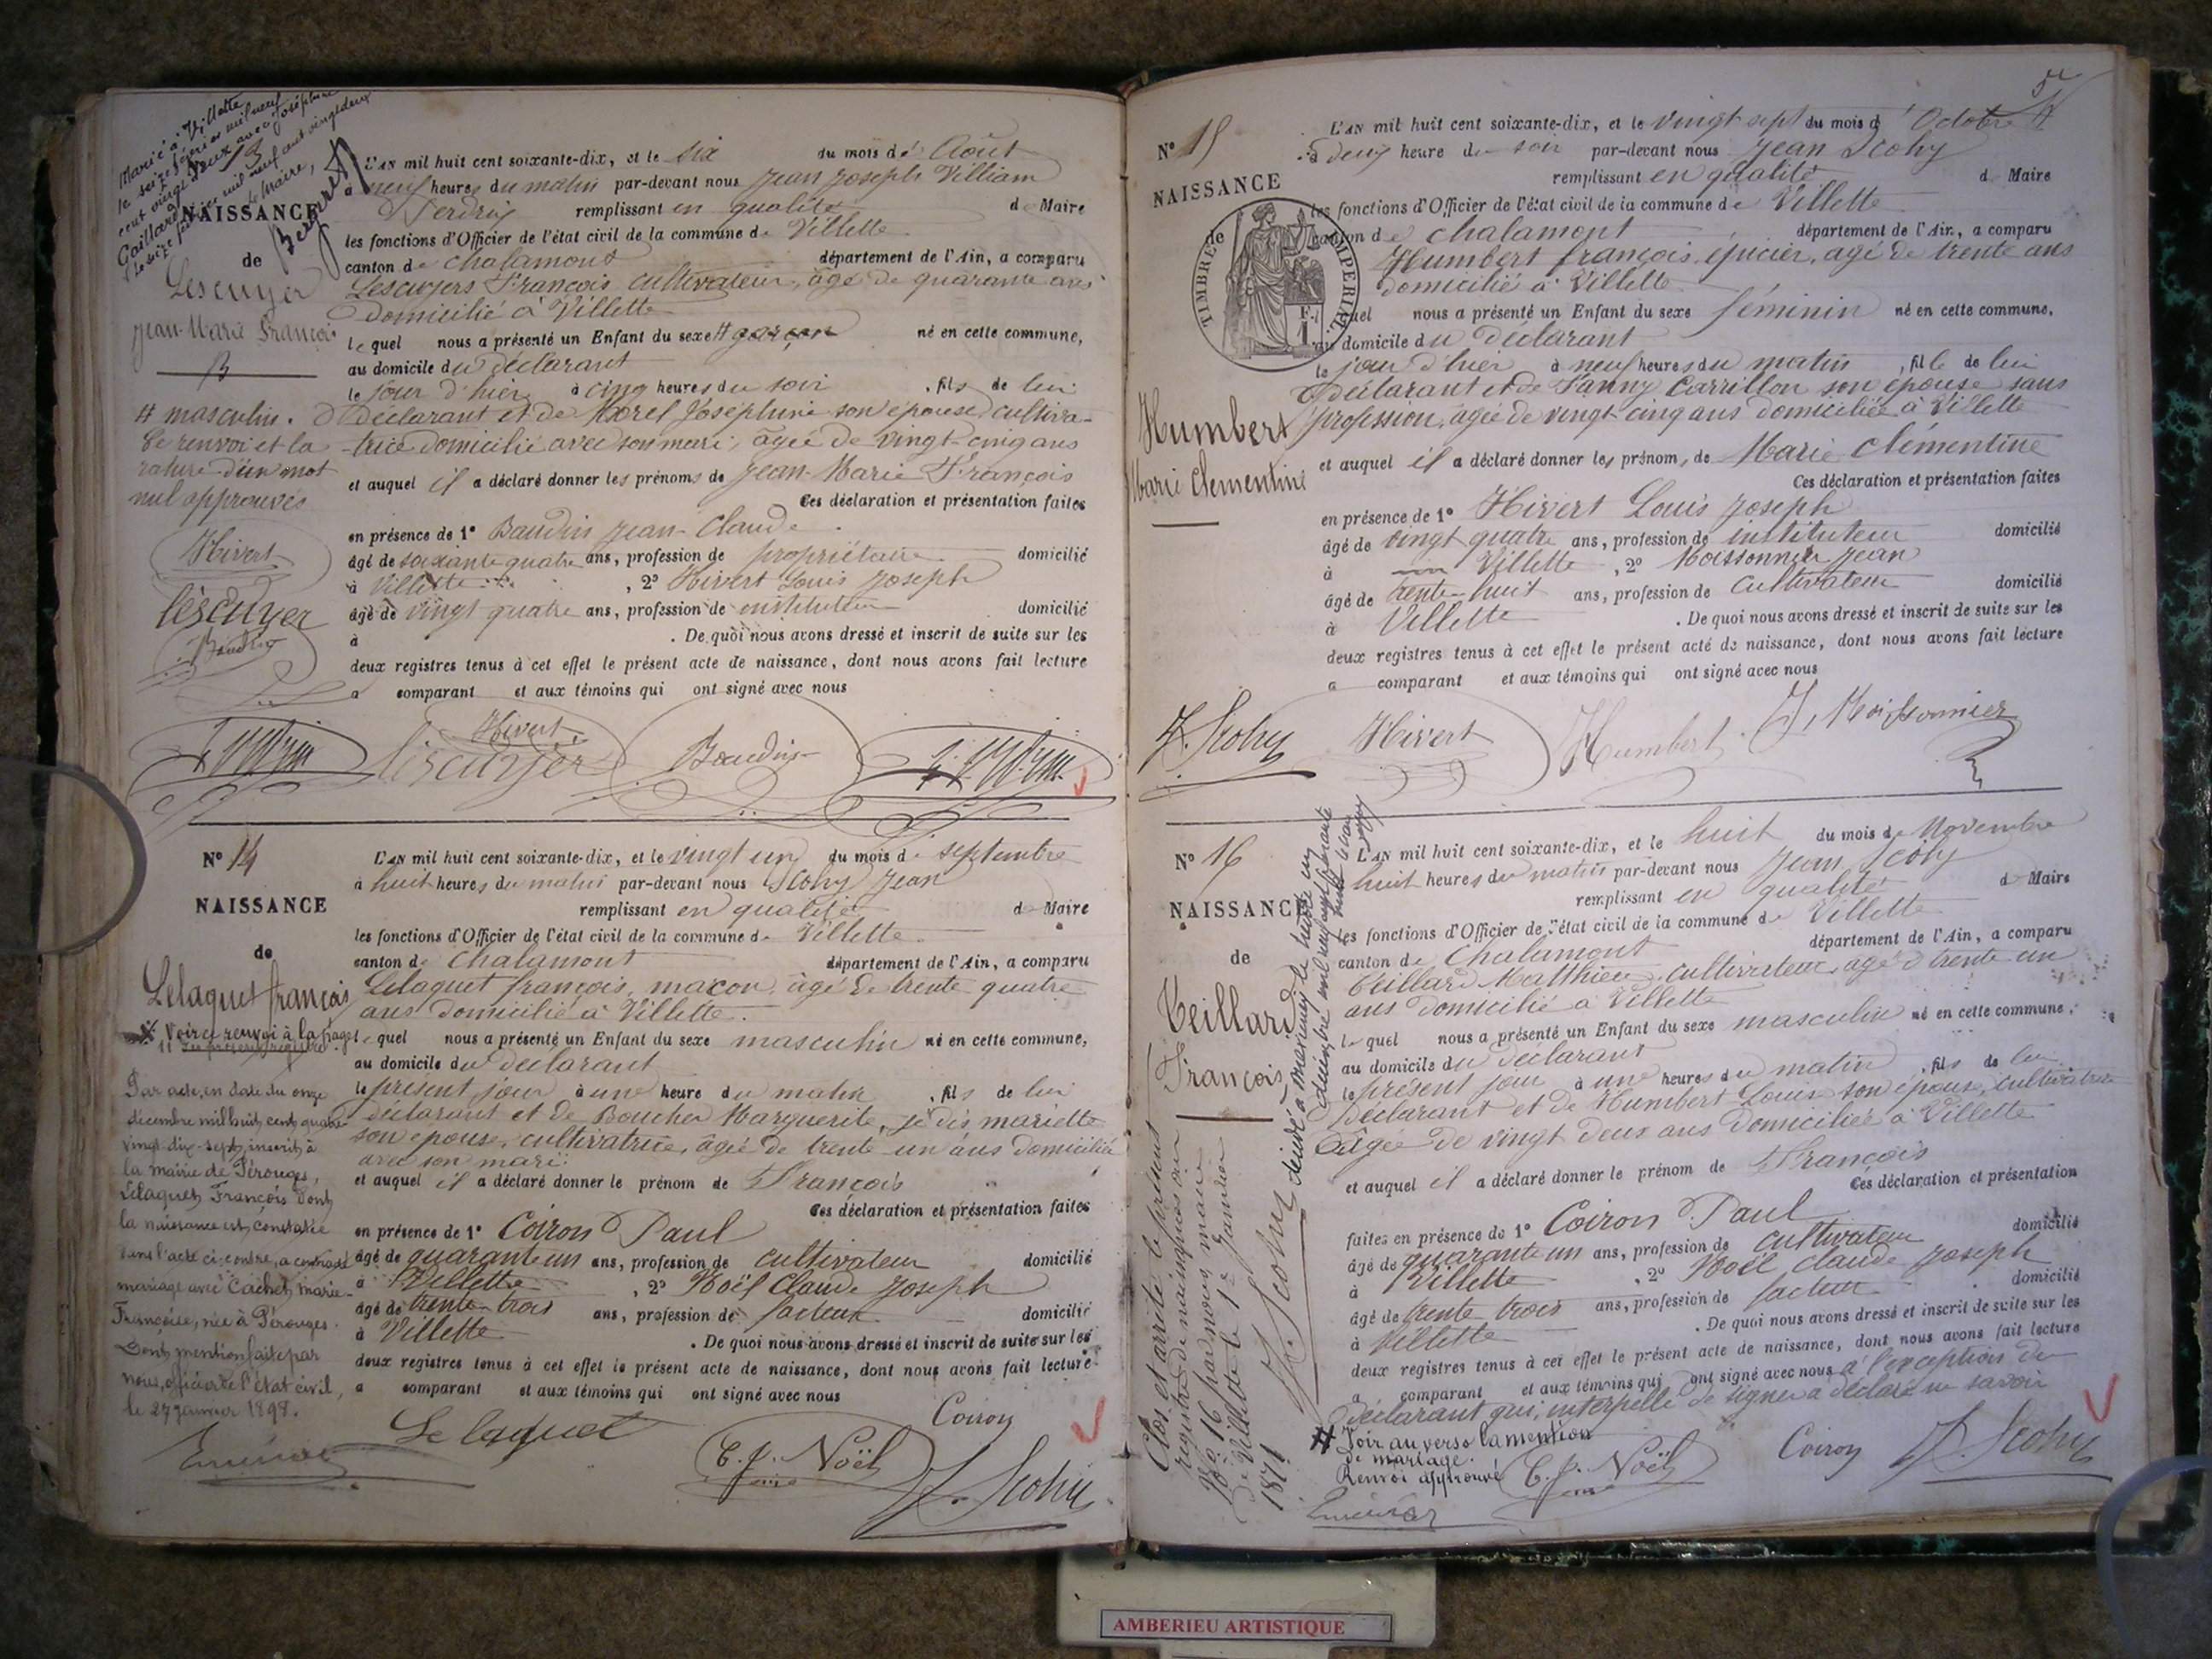 Marié à Villette
le seize février mil neuf
cent vingt deux avec Joséphine
Gaillard
le seize février mil neuf cent vingt deux
le Maire,
13
NAISSANCE
de
Lescuyer
Jean-Marie François
# masculin.
Le renvoi et la
rature d'un mot
nul approuvés
Hivert
lescuyer
Baudin
L'AN mil huit cent soixante-dix, et le six du mois de Août
à neuf heures du matin par-devant nous Jean Joseph Villiam
Perdrix remplissant en qualité de Maire
les fonctions d'Officier de l'état civil de la commune de Villette
canton de Chalamont département de l'Ain, a comparu
Lescuyers François, cultivateur, âgé de quarante ans
domicilié à Villette
lequel nous a présenté un Enfant du sexe # garçon né en cette commune,
au domicile du déclarant
le jour d'hier à cinq heures du soir, fils de lui
déclarant et de Morel Joséphine son épouse cultiva-
trice domicilié avec son mari, âgée de vingt-cinq ans
et auquel il a déclaré donner les prénoms de Jean-Marie François
Ces déclaration et présentation faites
en présence de 1° Baudin Jean-Claude
âgé de soixante quatre ans, profession de propriétaire domicilié
à Villette, 2° Hivert Louis Joseph
âgé de vingt quatre ans, profession de instituteur domicilié
à . De quoi nous avons dressé et inscrit de suite sur les
deux registres tenus à cet effet le présent acte de naissance, dont nous avons fait lecture
a comparant et aux témoins qui ont signé avec nous
Hivert
lescuyer Baudin
N° 14
NAISSANCE
de
Lelaquet françois
Voir ce renvoi à la page
11 du présent registre
Par acte, en date du onze
décembre mil huit cent quatre-
vingt-dix-sept, inscrit à
la mairie de Pérouges,
Lelaquet François dont
la naissance est constatée
dans l'acte ci-contre, a contracté
mariage avec Cachet, Marie-
Françoise, née à Pérouges.
Dont mention faite par
nous, officier de l'état civil,
le 27 janvier 1898.
L'AN mil huit cent soixante-dix, et le vingt un du mois de septembre
à huit heures du matin par-devant nous Scohy Jean
remplissant en qualité de Maire
les fonctions d'Officier de l'état civil de la commune de Villette
canton de Chalamont département de l'Ain, a comparu
Lelaquet françois, maçon, âgé de trente quatre
ans domicilié à Villette.
lequel nous a présenté un Enfant du sexe masculin né en cette commune,
au domicile du déclarant
le présent jour à une heure du matin, fils de lui
déclarant et de Boucher Marguerite, je dis mariette
son épouse, cultivatrice, âgée de trente un ans domiciliée
avec son mari
et auquel il a déclaré donner le prénom de François
Ces déclaration et présentation faites
en présence de 1° Coiron Paul
âgé de quarante un ans, profession de cultivateur domicilié
à Villette, 2° Noël Claude Joseph
âgé de trente-trois ans, profession de facteur domicilié
à Villette. De quoi nous avons dressé et inscrit de suite sur les
deux registres tenus à cet effet le présent acte de naissance, dont nous avons fait lecture
a comparant et aux témoins qui ont signé avec nous
Coiron
Lelaquet
C. J. Noël
J. Scohy
5
N° 15
NAISSANCE
de
TIMBRE IMPERIAL
F.
1
Humbert
Marie Clementine
L'AN mil huit cent soixante-dix, et le vingt sept du mois d'Octobre
à deux heure du soir par-devant nous Jean Scohy
remplissant en qualité de Maire
les fonctions d'Officier de l'état civil de la commune de Villette
canton de Chalamont département de l'Ain, a comparu
Humbert françois, épicier, agé de trente ans
domicilié à Villette
lequel nous a présenté un Enfant du sexe féminin né en cette commune,
au domicile du déclarant
le jour d'hier à neuf heures du matin, fille de lui
déclarant et de Fanny Carrillon son épouse sans
profession, agée de vingt-cinq ans domiciliée à Villette
et auquel il a déclaré donner les prénom, de Marie Clémentine
Ces déclaration et présentation faites
en présence de 1° Hivert Louis Joseph
âgé de vingt quatre ans, profession de instituteur domicilié
à Villette, 2° Moissonnier Jean
âgé de trente-huit ans, profession de cultivateur domicilié
à Villette. De quoi nous avons dressé et inscrit de suite sur les
deux registres tenus à cet effet le présent acte de naissance, dont nous avons fait lecture
a comparant et aux témoins qui ont signé avec nous
J. Scohy Hivert Humbert J. Moissonnier
N° 16
NAISSANCE
de
Teillard
François
décédé à
Clos et arrêté le présent
registre de naissances au
N° 16 par nous maire
de Villette le 1er Janvier
1871
J. Scohy
L'AN mil huit cent soixante-dix, et le huit du mois de Novembre
huit heures du matin par-devant nous Jean Scohy
remplissant en qualité de Maire
les fonctions d'Officier de l'état civil de la commune de Villette
canton de Chalamont département de l'Ain, a comparu
Teillard Matthieu, cultivateur, agé de trente un
ans domicilié à Villette
lequel nous a présenté un Enfant du sexe masculin né en cette commune,
au domicile du déclarant
le présent jour à une heures du matin, fils de lui
déclarant et de Humbert Louise son épouse, cultivatrice
âgée de vingt deux ans domiciliée à Villette
et auquel il a déclaré donner le prénom de François
Ces déclaration et présentation
faites en présence de 1° Coiron Paul domicilié
âgé de quarante un ans, profession de cultivateur
à Villette, 2° Noël Claude Joseph
âgé de trente trois ans, profession de facteur domicilié
à Villette. De quoi nous avons dressé et inscrit de suite sur les
deux registres tenus à cet effet le présent acte de naissance, dont nous avons fait lecture
a comparant et aux témoins qui ont signé avec nous à l'exception du
déclarant qui, interpellé de signer a déclaré ne savoir
# Voir au verso la mention
de mariage.
Renvoi approuvé
C. J. Noël
Coiron J. Scohy
AMBERIEU ARTISTIQUE